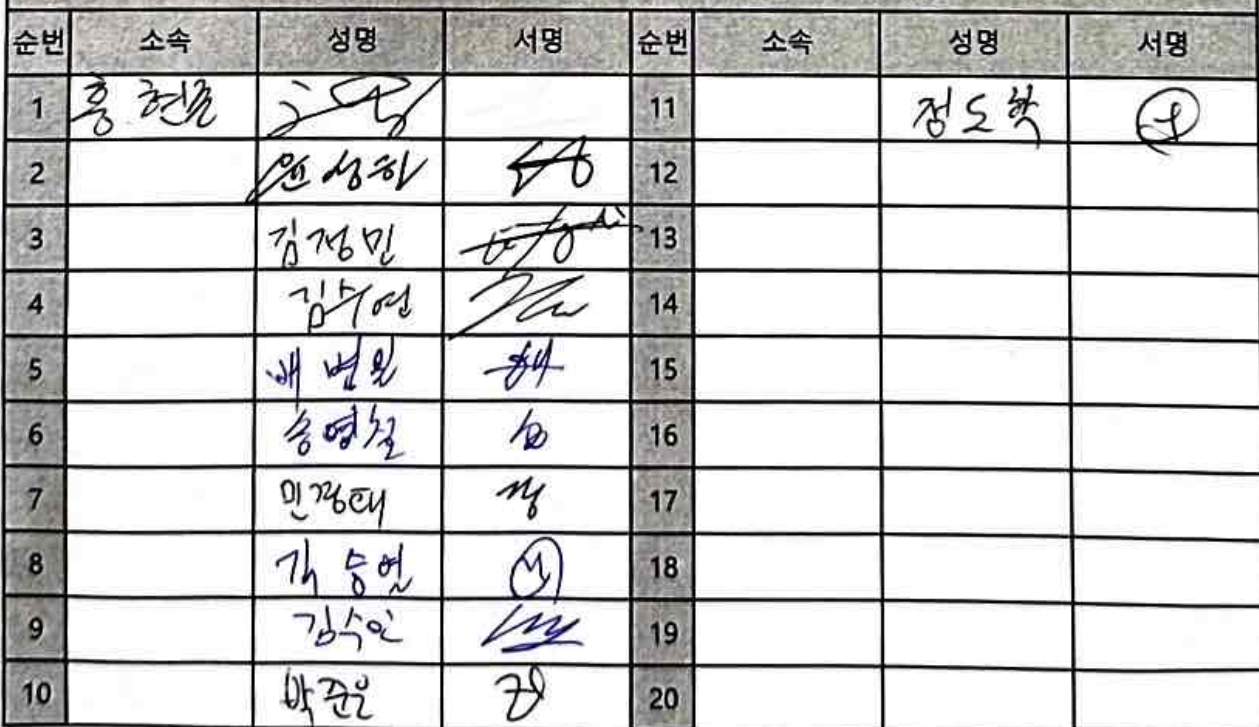 순번 소속 성명 서명 순번 소속 성명 서명
1 홍현준 11 정도
2 윤성하 12
3 김정민 13
4 김수연 14
5 배병원 15
6 송영철 16
7 민경태 17
8 승연 18
9 김수인 19
10 박준은 20